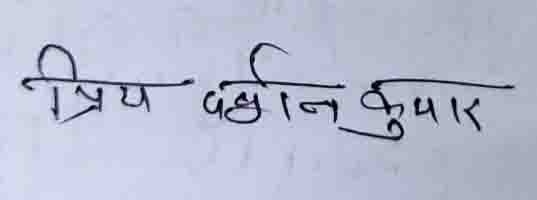 प्रिय वर्धन कुमार